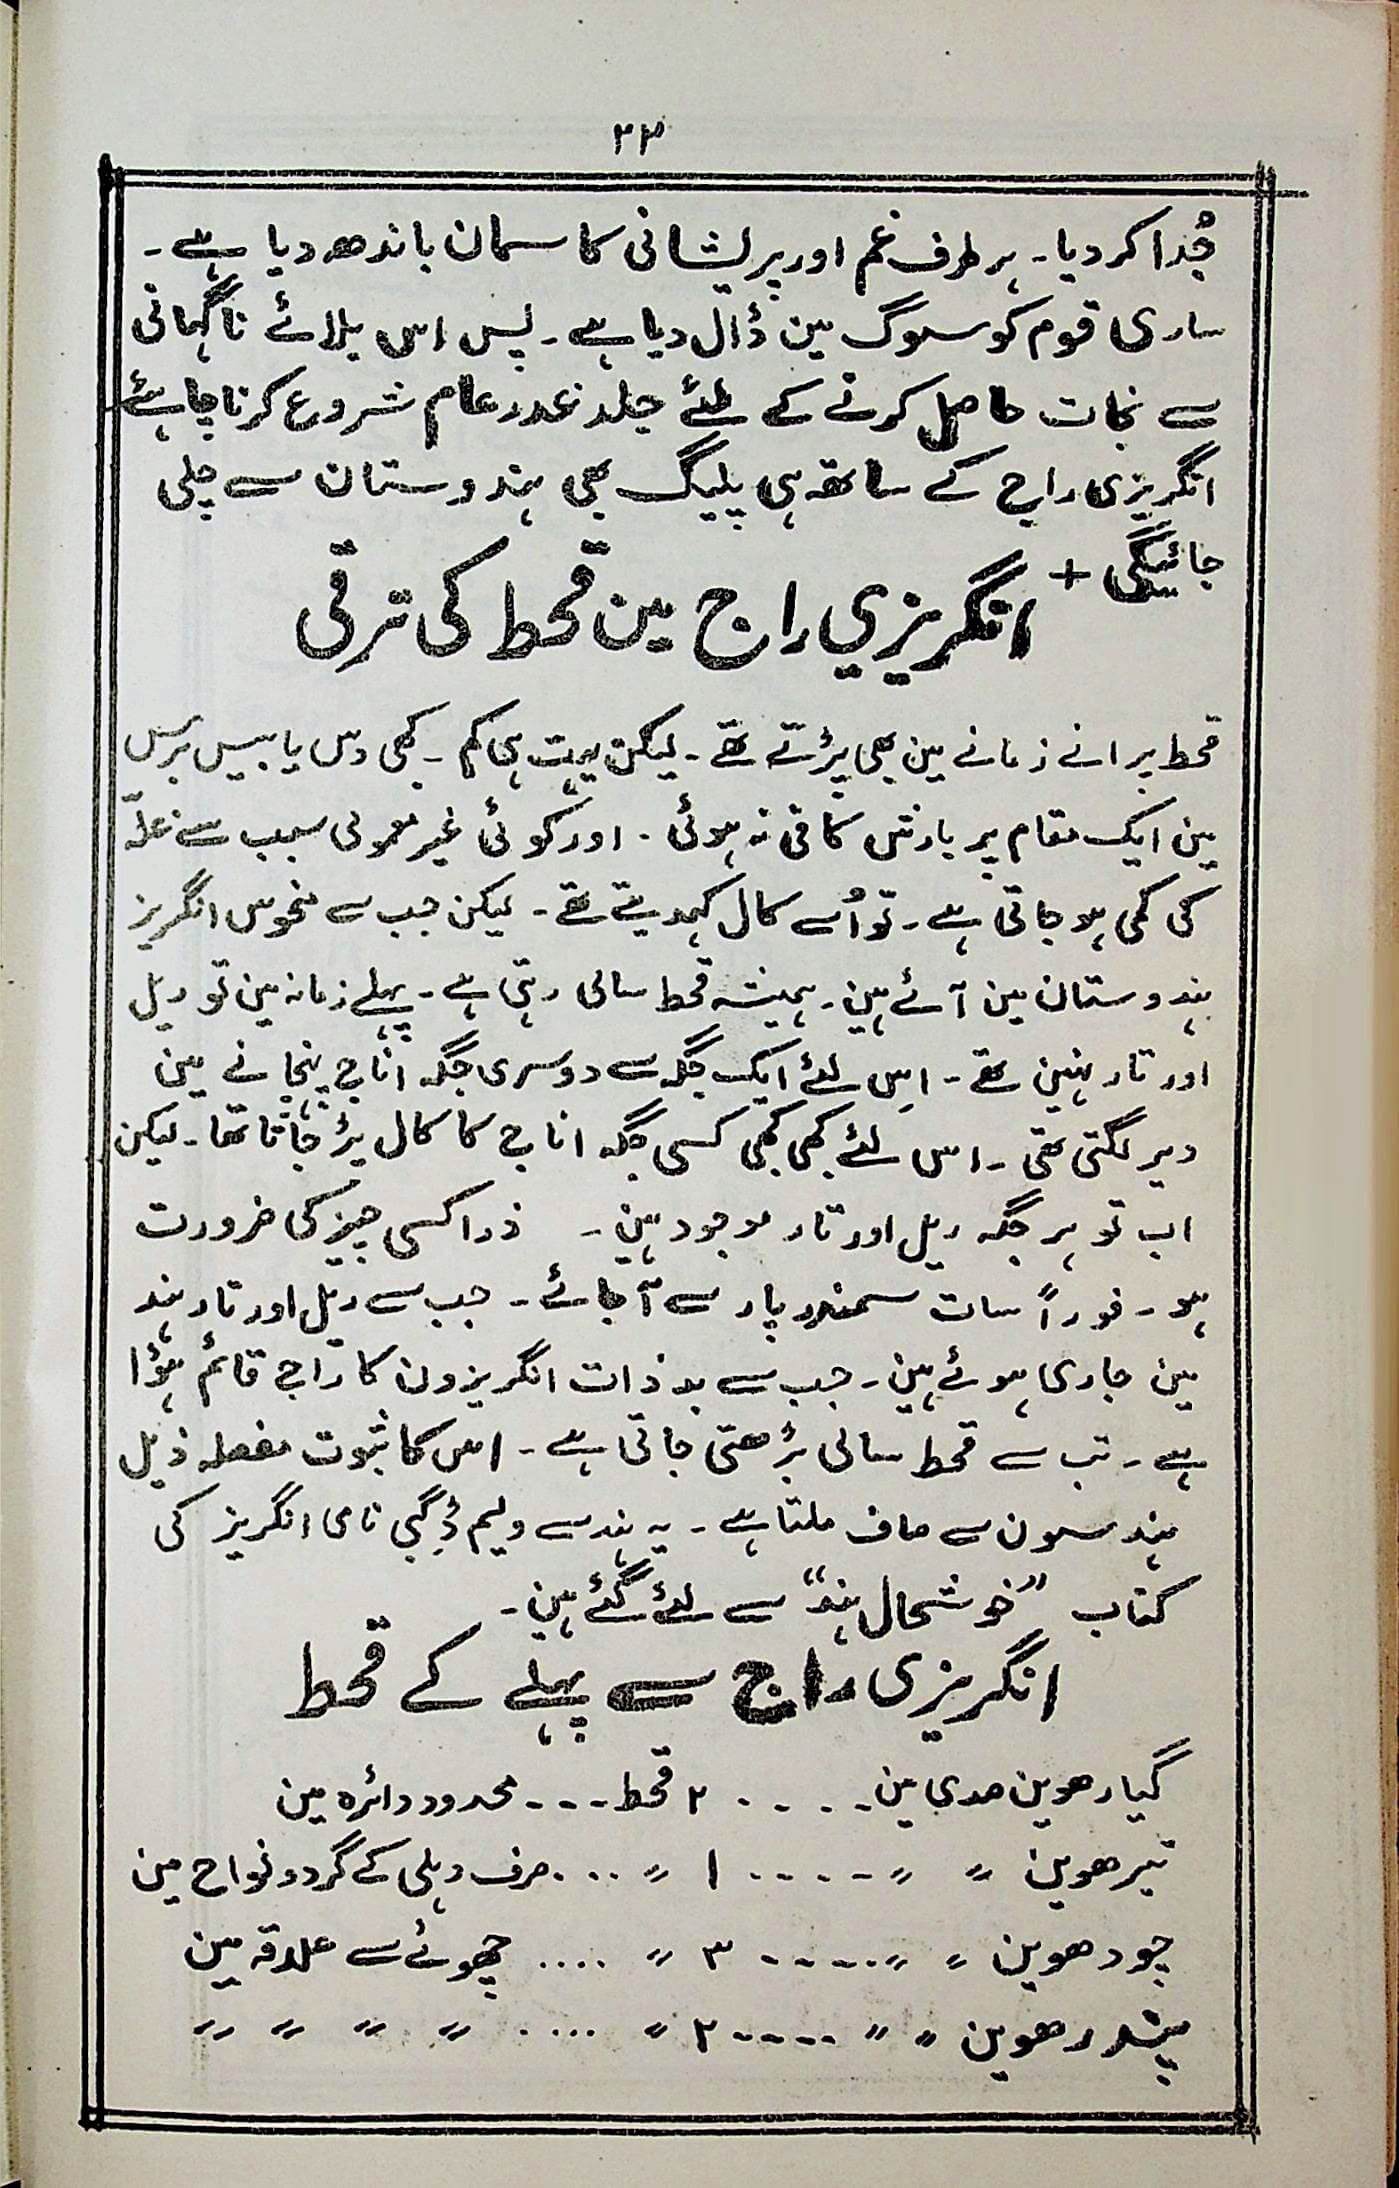 ۲۳
جُدا کر دیا ۔ ہر طرف غم اور پریشانی کا سمان باندھ دیا ہے ۔
ساری قوم کو سوگ مین ڈال دیا ہے ۔ پس اس بلائے ناگہانی
سے نجات حاصل کرنے کے لئے جلد غدر عام شروع کرنا چاہئے
انگریزی راج کے ساتھ ہی پلیگ بھی ہندوستان سے چلی
جائیگی +
انگریزی راج مین قحط کی ترقی
قحط پرانے زمانے مین بھی پڑتے تھے ۔ لیکن بہت ہی کم ۔ کبھی دس یا بیس برس
مین ایک مقام پر بارش کافی نہ ہوئی ۔ اور کوئی غیر معمولی سبب سے غلّہ
کی کمی ہو جاتی ہے ۔ تو اُسے کال کہدیتے تھے ۔ لیکن جب سے منحوس انگریز
ہندوستان مین آئے ہین ۔ ہمیشہ قحط سالی رہتی ہے ۔ پہلے زمانہ مین تو ریل
اور تار نہین تھے ۔ اِس لئے ایک جگہ سے دوسری جگہ اناج پہنچانے مین
دیر لگتی تھی ۔ اس لئے کبھی کبھی کسی جگہ اناج کا کال پڑ جاتا تھا ۔ لیکن
اب تو ہر جگہ ریل اور تار موجود ہین ۔ ذرا کسی چیز کی ضرورت
ہو ۔ فوراً سات سمندر پار سے آ جائے ۔ جب سے ریل اور تار ہند
مین جاری ہوئے ہین ۔ جب سے بد ذات انگریزون کا راج قائم ہؤا
ہے ۔ تب سے قحط سالی بڑھتی جاتی ہے ۔ اس کا ثبوت مفصلہ ذیل
ہندسون سے صاف ملتا ہے ۔ یہ ہندسے ولیم ڈِگبی نامی انگریز کی
کتاب ”خوشحال ہند“ سے لئے گئے ہین ۔
انگریزی راج سے پہلے کے قحط
گیارھوین صدی مین ۔ ۔ ۔ ۔ ۲ قحط ۔ ۔ ۔ محدود دائرہ مین
تیرھوین ״ ״ ۔ ۔ ۔ ۔ ۔ ۱ ״ ۔ ۔ ۔ صرف دہلی کے گرد و نواح مین
چودھوین ״ ״ ۔ ۔ ۔ ۔ ۔ ۳ ״ ۔ ۔ ۔ ۔ چھوٹے سے علاقہ مین
پندرھوین ״ ״ ۔ ۔ ۔ ۔ ۲ ״ ۔ ۔ ۔ ۔ ״ ״ ״ ״